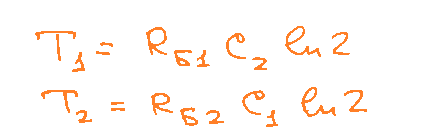 T₁ = R_Б1 C₂ ln 2
T₂ = R_Б2 C₁ ln 2